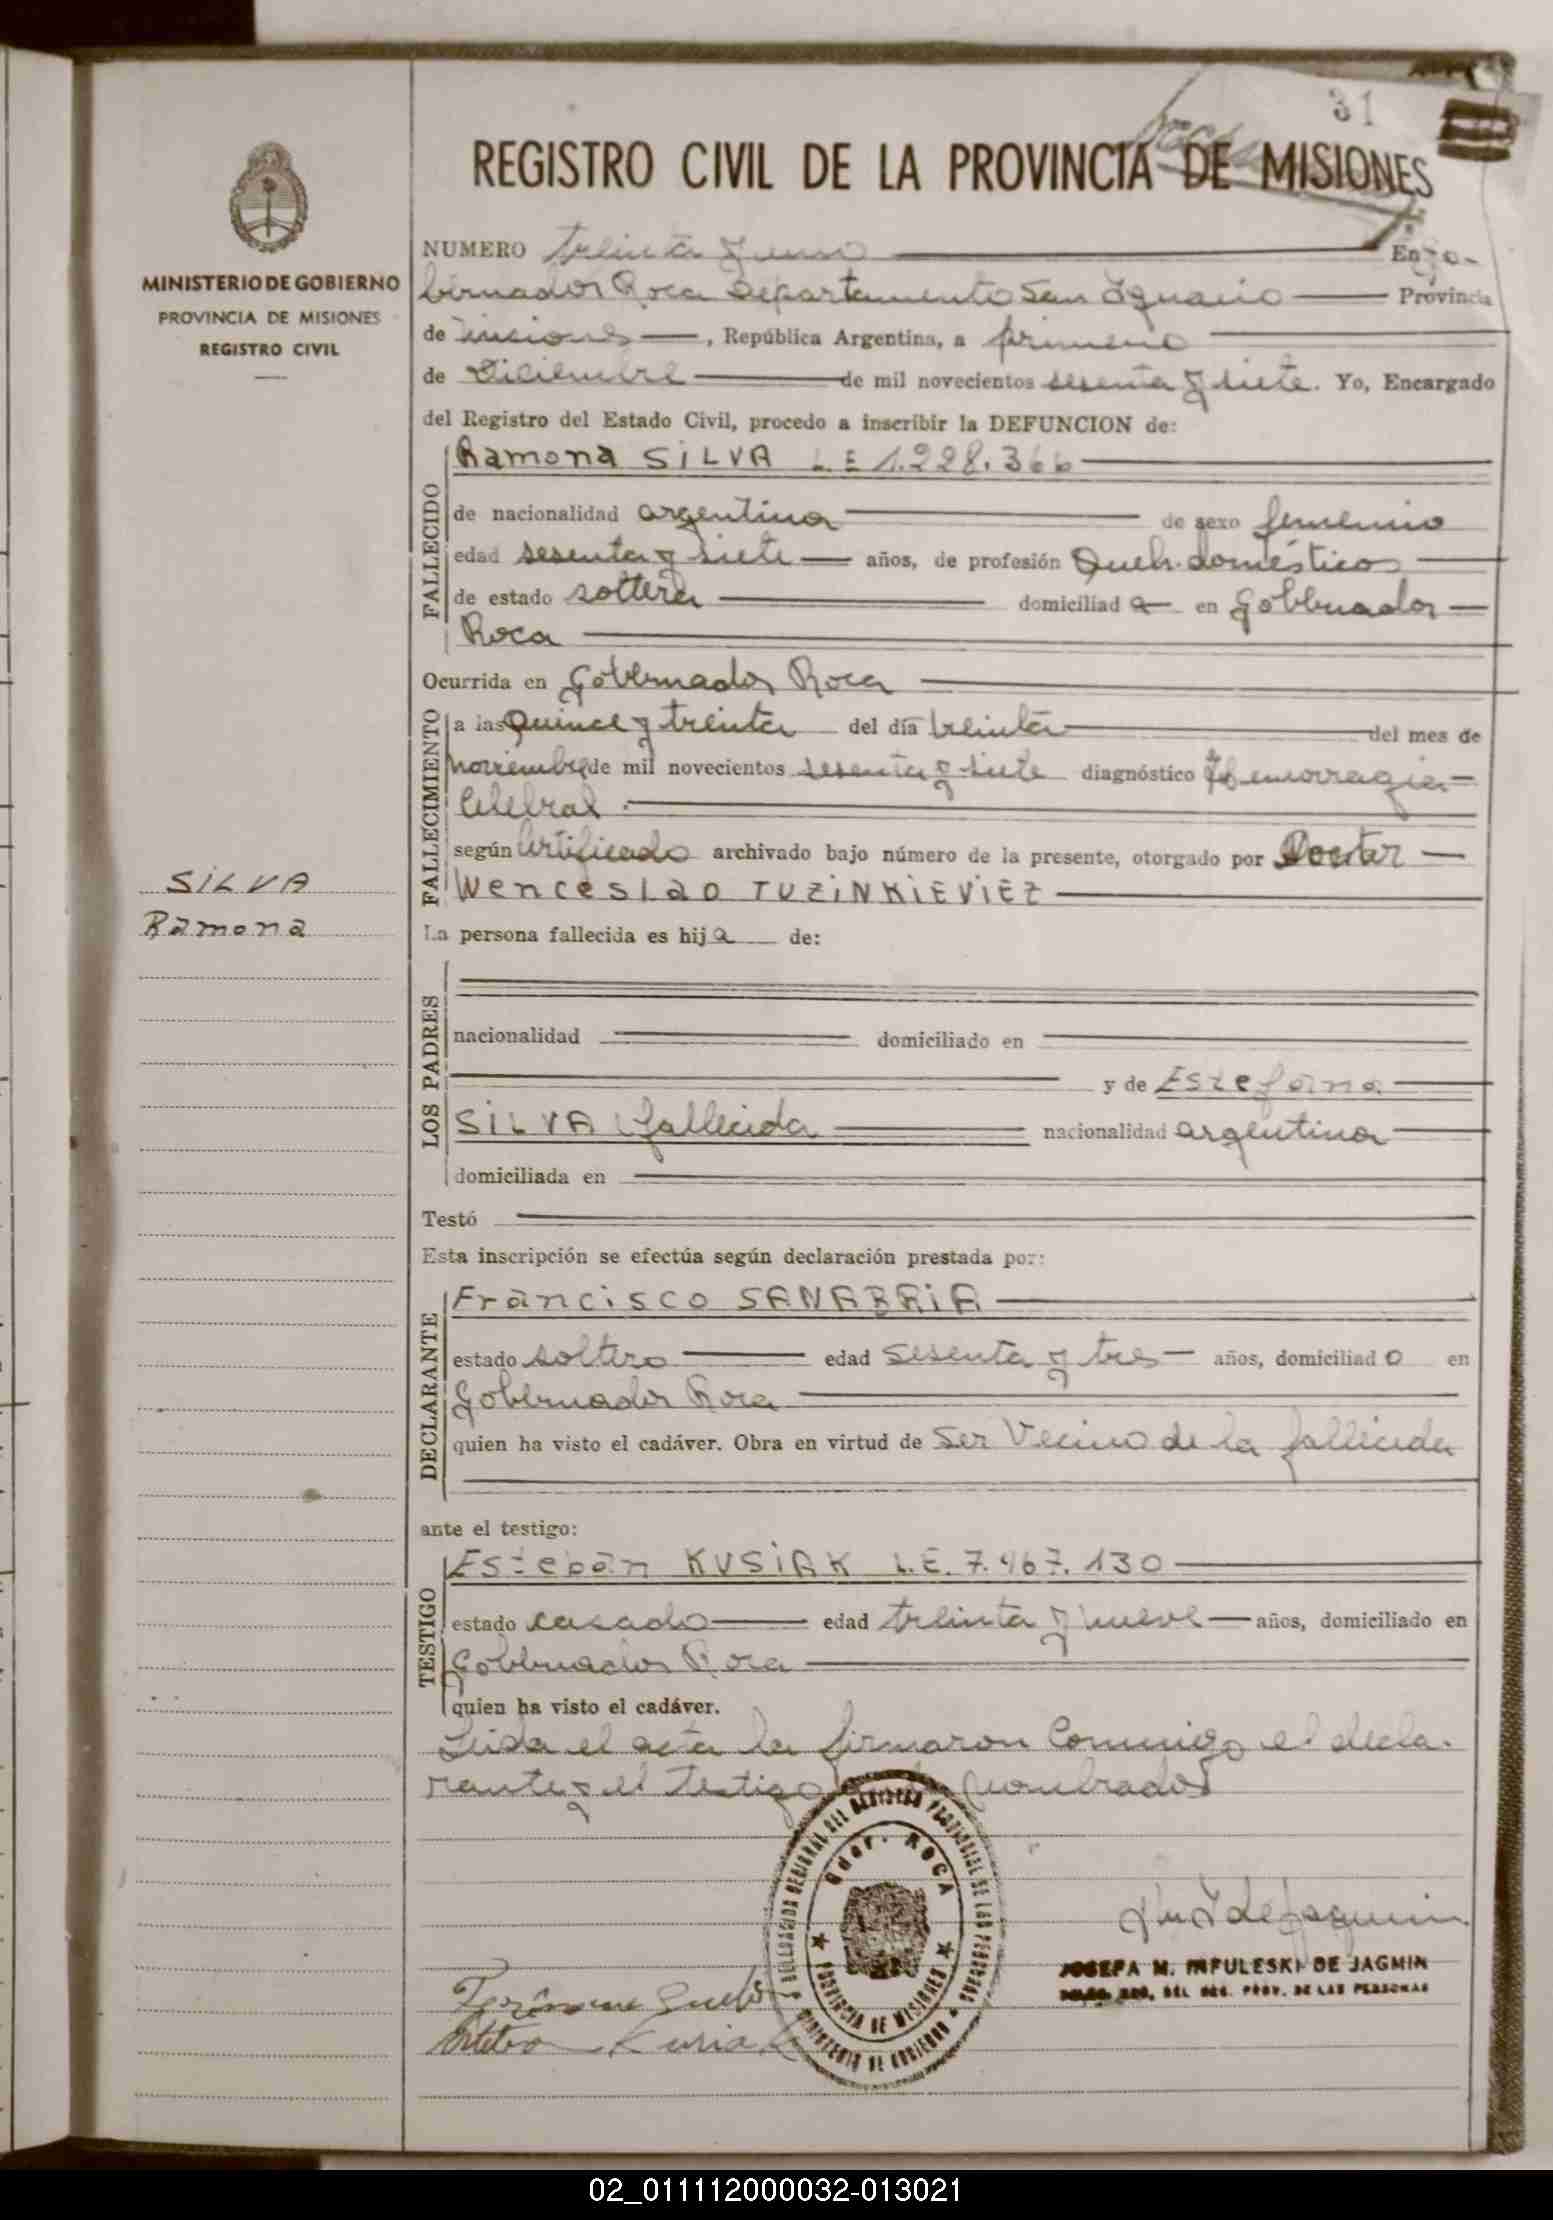 31
REGISTRO CIVIL DE LA PROVINCIA DE MISIONES
MINISTERIO DE GOBIERNO
PROVINCIA DE MISIONES
REGISTRO CIVIL
NUMERO treinta y uno En Go-
bernador Roca Departamento San Ignacio Provincia
de misiones, República Argentina, a primero
de Diciembre de mil novecientos sesenta y siete. Yo, Encargado
del Registro del Estado Civil, procedo a inscribir la DEFUNCION de:
FALLECIDO
Ramona SILVA L E 1.228.366
de nacionalidad argentina de sexo femenino
edad sesenta y siete años, de profesión Queh. doméstico
de estado soltera domiciliad a en Gobernador
Roca
Ocurrida en Gobernador Roca
FALLECIMIENTO
a las Quince y treinta del día treinta del mes de
noviembre de mil novecientos sesenta y siete diagnóstico Hemorragia
Celebral
según Certificado archivado bajo número de la presente, otorgado por Doctor
Wenceslao TUZINKIEVIEZ
SILVA
Ramona
La persona fallecida es hij a de:
LOS PADRES
nacionalidad domiciliado en
y de Estefana
SILVA fallecida nacionalidad argentina
domiciliada en
Testó
Esta inscripción se efectúa según declaración prestada por:
DECLARANTE
Francisco SANABRIA
estado soltero edad sesenta y tres años, domiciliad o en
Gobernador Roca
quien ha visto el cadáver. Obra en virtud de ser Vecino de la fallecida
ante el testigo:
TESTIGO
Esteban KUSIAK L.E. 7.467.130
estado casado edad treinta y nueve años, domiciliado en
Gobernador Roca
quien ha visto el cadáver.
Leida el acta la firmaron Conmigo el decla-
rante y el testigo nombrados
DELEGACION REGIONAL DEL REGISTRO PROVINCIAL DE LAS PERSONAS
Gdor. ROCA
PROVINCIA DE MISIONES
MINISTERIO DE GOBIERNO
JOSEFA M. INFULESKI DE JAGMIN
DELEG. REG. DEL REG. PROV. DE LAS PERSONAS
02_011112000032-013021